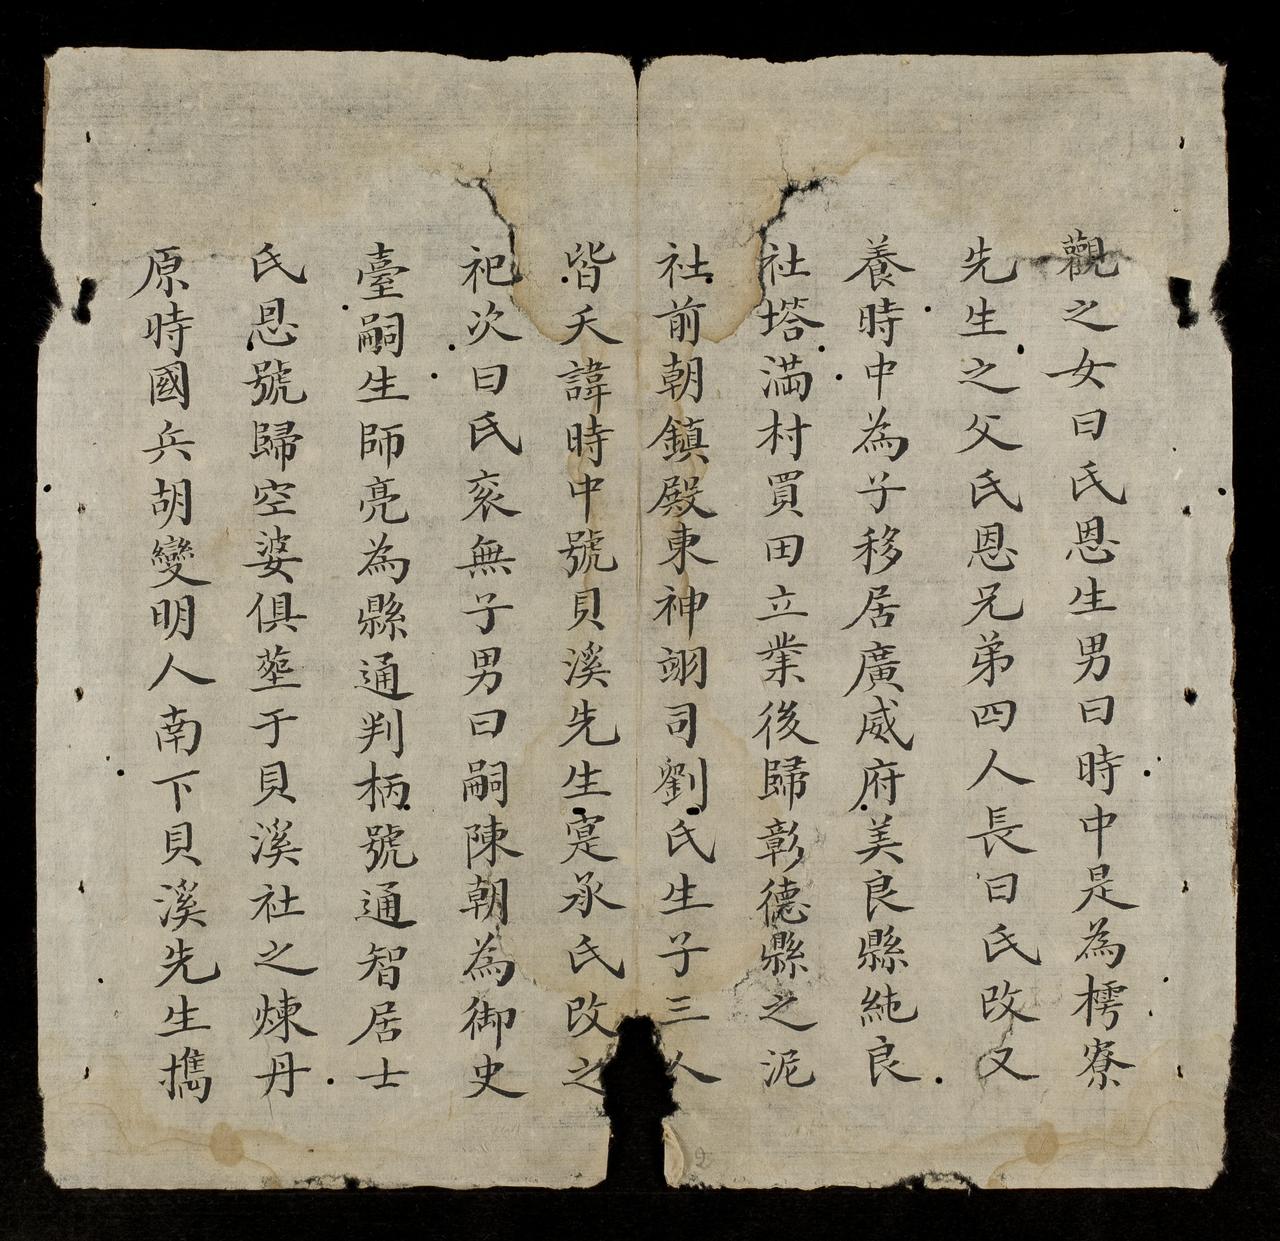 觀之女曰氏恩生男曰時中是為樗寮
先生之父氏恩兄弟四人長曰氏改又
養時中為子移居廣威府美良縣純良
社塔滿村買田立業後歸彰德縣之泥
社前朝鎮殿東神翊司劉氏生子三人
皆夭諱時中號貝溪先生寔承氏改之
祀次曰氏衮無子男曰嗣陳朝為御史
臺嗣生師亮為縣通判柄號通智居士
氏恩號歸空婆俱塟于貝溪社之煉丹
原時國兵胡變明人南下貝溪先生擕